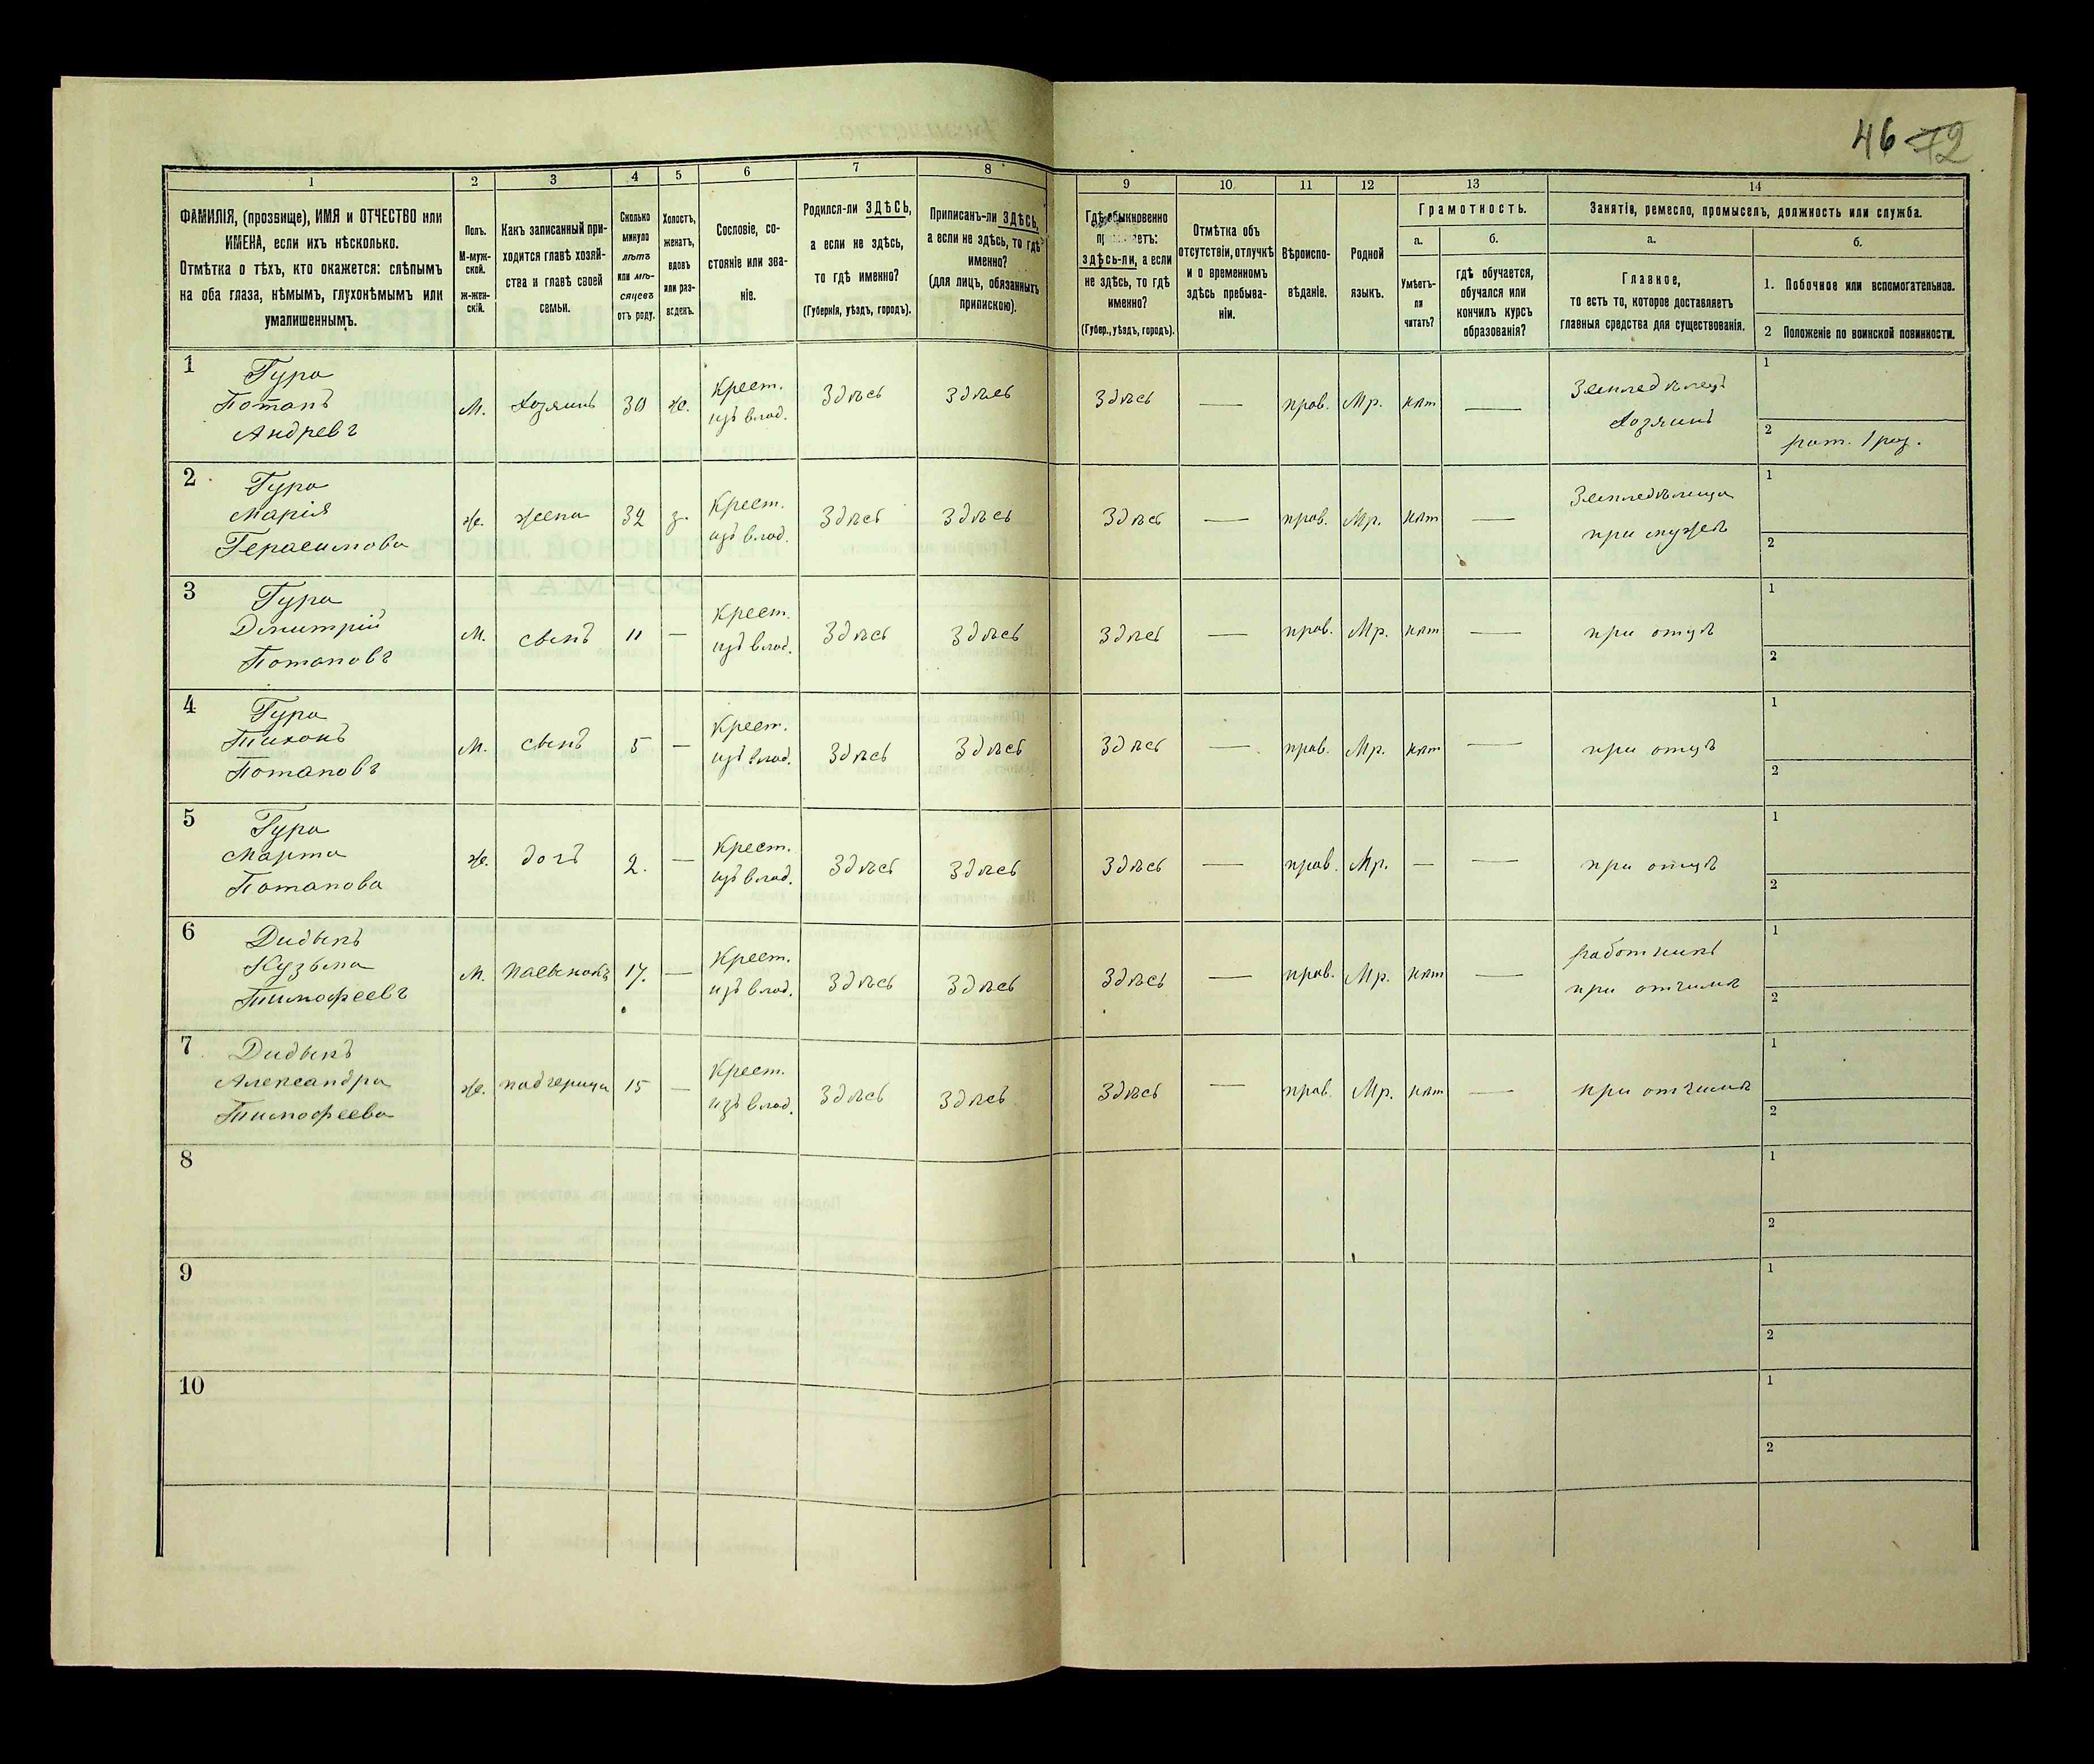 46 72
1
2
3
4
5
6
7
8
9
10
11
12
13
14
ФАМИЛІЯ, (прозвище), ИМЯ и ОТЧЕСТВО или
ИМЕНА, если ихъ нѣсколько.
Отмѣтка о тѣхъ, кто окажется: слѣпымъ
на оба глаза, нѣмымъ, глухонѣмымъ или
умалишеннымъ.
Полъ.
М-муж-
ской.
Ж-жен-
скій.
Какъ записанный при-
ходится главѣ хозяй-
ства и главѣ своей
семьи.
Сколько
минуло
лѣтъ
или мѣ-
сяцевъ
отъ роду.
Холостъ,
женатъ,
вдовъ
или раз-
веденъ.
Сословіе, со-
стояніе или зва-
ніе.
Родился-ли ЗДѢСЬ,
а если не здѣсь,
то гдѣ именно?
(Губернія, уѣздъ, городъ).
Приписанъ-ли ЗДѢСЬ,
а если не здѣсь, то гдѣ
именно?
(для лицъ, обязанныхъ
припискою).
Гдѣ обыкновенно
здѣсь-ли, а если
не здѣсь, то гдѣ
именно?
(Губер., уѣздъ, городъ).
Отмѣтка объ
отсутствіи, отлучкѣ
и о временномъ
здѣсь пребыва-
ніи.
Вѣроиспо-
вѣданіе.
Родной
языкъ.
Грамотность.
а.
Умѣетъ-
ли
читать?
б.
гдѣ обучается,
обучался или
кончилъ курсъ
образованія?
Занятіе, ремесло, промыселъ, должность или служба.
а.
Главное,
то есть то, которое доставляетъ
главныя средства для существованія.
б.
1. Побочное или вспомогательное.
2 Положеніе по воинской повинности.
1
Гура
Потапъ
Андревъ
М. Хозяинъ 30 ж. Крест.
изъ влад.
Здѣсь Здѣсь Здѣсь — прав. Мр. нѣт —
Земледѣлецъ
Хозяинъ
1
2 рат. 1 раз.
2
Гура
Марія
Герасимова
ж. жена 32 з. Крест.
изъ влад.
Здѣсь Здѣсь Здѣсь — прав. Мр. нѣт —
Земледѣлица
при мужѣ
1
2
3
Гура
Димитрій
Потаповъ
М. сынъ 11 — Крест.
изъ влад.
Здѣсь Здѣсь Здѣсь — прав. Мр. нѣт — при отцѣ
1
2
4
Гура
Тихонъ
Потаповъ
М. сынъ 5 — Крест.
изъ влад.
Здѣсь Здѣсь Здѣсь — прав. Мр. нѣт — при отцѣ
1
2
5
Гура
Марта
Потапова
ж. дочъ 2. — Крест.
изъ влад.
Здѣсь Здѣсь Здѣсь — прав. Мр. — — при отцѣ
1
2
6
Дидыкъ
Кузьма
Тимофеевъ
М. пасынокъ 17. — Крест.
изъ влад.
Здѣсь Здѣсь Здѣсь — прав. Мр. нѣт —
работникъ
при отчимѣ
1
2
7
Дидыкъ
Александра
Тимофеева
ж. падчерица 15 — Крест.
изъ влад.
Здѣсь Здѣсь Здѣсь — прав. Мр. нѣт — при отчимѣ
1
2
8
1
2
9
1
2
10
1
2